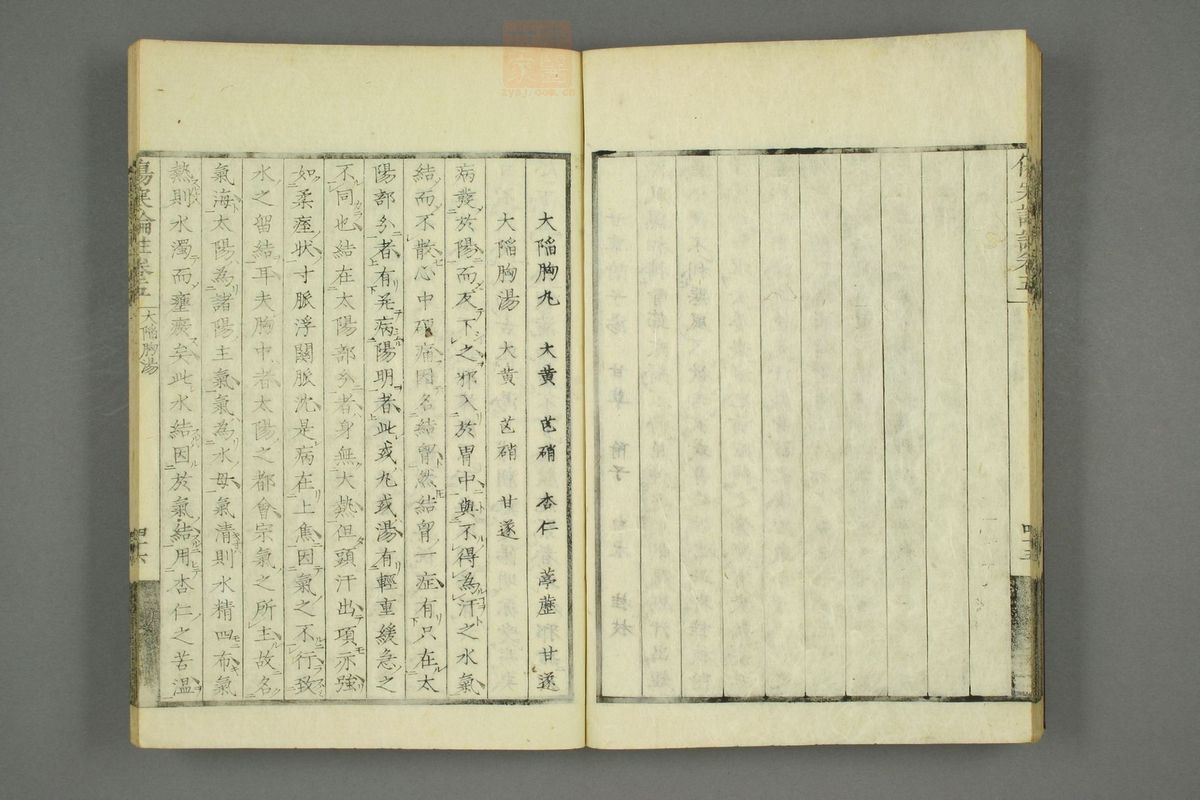 四十五
大陷胸丸 大黄 芒硝 杏仁 葶藶 甘遂
大陷胸湯 大黄 芒硝 甘遂
病發於陽而反下之邪入於胃中與不得為汗之水氣
結而不散心中硬痛因名結胷然結胷一症有只在太
陽部分者有兼病陽明者此或丸或湯有輕重緩急之
不同也結在太陽部分者身無大熱但頭汗出項亦強
如柔痓狀寸脈浮關脈沈是病在上焦因氣之不行致
水之留結耳夫胸中者太陽之都會宗氣之所主故名
氣海太陽為諸陽主氣氣為水母氣清則水精四布氣
熱則水濁而壅瘀矣此水結因於氣結用杏仁之苦温
傷寒論註卷五
大陷胸湯
四十六